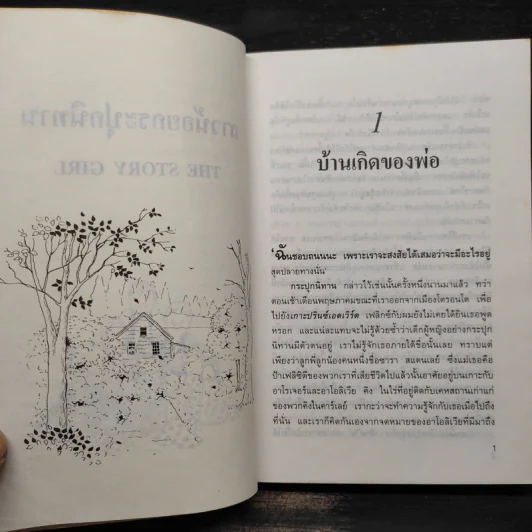 1
บ้านเกิดของพ่อ
'ฉันชอบถนนนะ เพราะเราจะสงสัยได้เสมอว่าจะมีอะไรอยู่
สุดปลายทางนั้น'
กระปุกนิทาน กล่าวไว้เช่นนั้นครั้งหนึ่งนานมาแล้ว ทว่า
ตอนเช้าเดือนพฤษภาคมขณะที่เราออกจากเมืองโตรอนโต เพื่อ
ไปยังเกาะปรินซ์เอดเวิร์ด เฟลิกซ์กับผมยังไม่เคยได้ยินเธอพูด
หรอก และแน่ละแทบจะไม่รู้ด้วยซ้ำว่าเด็กผู้หญิงอย่างกระปุก
นิทานมีตัวตนอยู่ เราไม่รู้จักเธอภายใต้ชื่อนั้นเลย ทราบแต่
เพียงว่าลูกพี่ลูกน้องคนหนึ่งชื่อซารา สแตนเลย์ ซึ่งแม่เธอคือ
ป้าเฟลิซิตีของพวกเราที่เสียชีวิตไปแล้วนั้นอาศัยอยู่บนเกาะกับ
อาโรเจอร์และอาโอลิเวีย คิง ในไร่ที่อยู่ติดกับเคหสถานเก่าแก่
ของพวกคิงในคาร์ไลย์ เราจะทำความรู้จักกับเธอเมื่อไปถึง
ที่นั่น และเราก็คิดกันเองจากจดหมายของอาโอลิเวียที่มีมาถึง
1